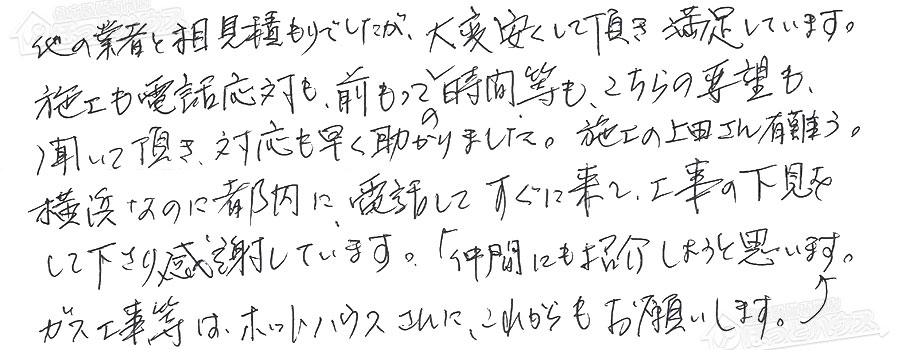 他の業者と相見積もりでしたが、大変安くして頂き満足しています。
施工も電話応対も、前もっての時間等も、こちらの要望も、
聞いて頂き、対応も早く助かりました。施工の上田さん有難う。
横浜なのに都内に、電話してすぐに来て、工事の下見を
して下さり感謝しています。「仲間にも紹介しようと思います。
ガス工事等は、ホットハウスさんに、これからもお願いします。」